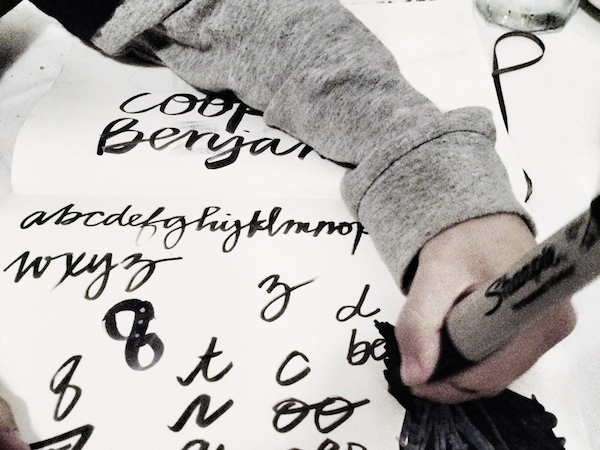 coop
Benjam
abcdefghijklmnop
wxyz
z d
8 be
8 t c
r oo
Sharpie